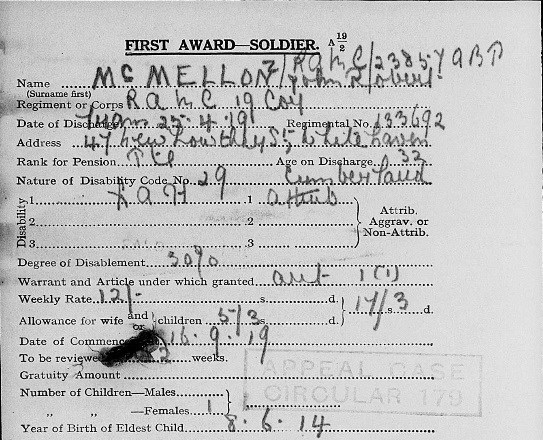 FIRST AWARD—SOLDIER. A 19/2
7/RAMC/23857 ABD
Name McMELLON, John Robert
(Surname first)
Regiment or Corps RAMC 19 Coy
Date of Discharge 25.4.19 Regimental No. 133692
Address 47 St, Whitehaven
Rank for Pension Pte Age on Discharge 32
Nature of Disability Code No. 29 Cumberland
Disability
1. D A H 1 Attrib
2. 2
3. 3
Attrib.
Aggrav. or
Non-Attrib.
Degree of Disablement 30%
Warrant and Article under which granted 1(1)
Weekly Rate 12/- s. d. 17/3 s. d.
Allowance for wife and or children 5/3 s. d.
Date of Commence 16.9.19
To be reviewed 52 weeks.
Gratuity Amount
APPEAL CASE
CIRCULAR 179
Number of Children—Males
„ „ —Females 1
Year of Birth of Eldest Child 8.6.14